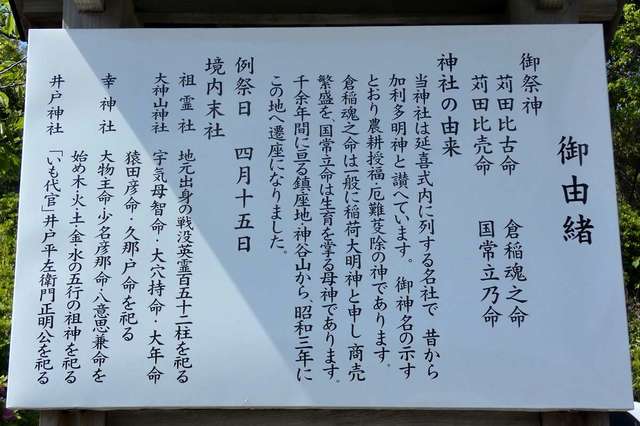 御由緒
御祭神
苅田比古命　倉稲魂之命
苅田比売命　国常立乃命
神社の由来
当神社は延喜式内に列する名社で　昔から
加利多明神と讃へています。　御神名の示す
とおり農耕授福・厄難芟除の神であります。
倉稲魂之命は一般に稲荷大明神と申し商売
繁盛を、国常立命は生育を掌る母神であります。
千余年間に亘る鎮座地・神谷山から、昭和三年に
この地へ遷座になりました。
例祭日　四月十五日
境内末社
祖霊社　地元出身の戦没英霊百五十二柱を祀る
大神山神社　宇気母智命・大穴持命・大年命
猿田彦命・久那戸命を祀る
幸神社　大物主命・少名彦那命・八意思兼命を
始め木・火・土・金・水の五行の祖神を祀る
井戸神社　「いも代官」井戸平左衛門正明公を祀る